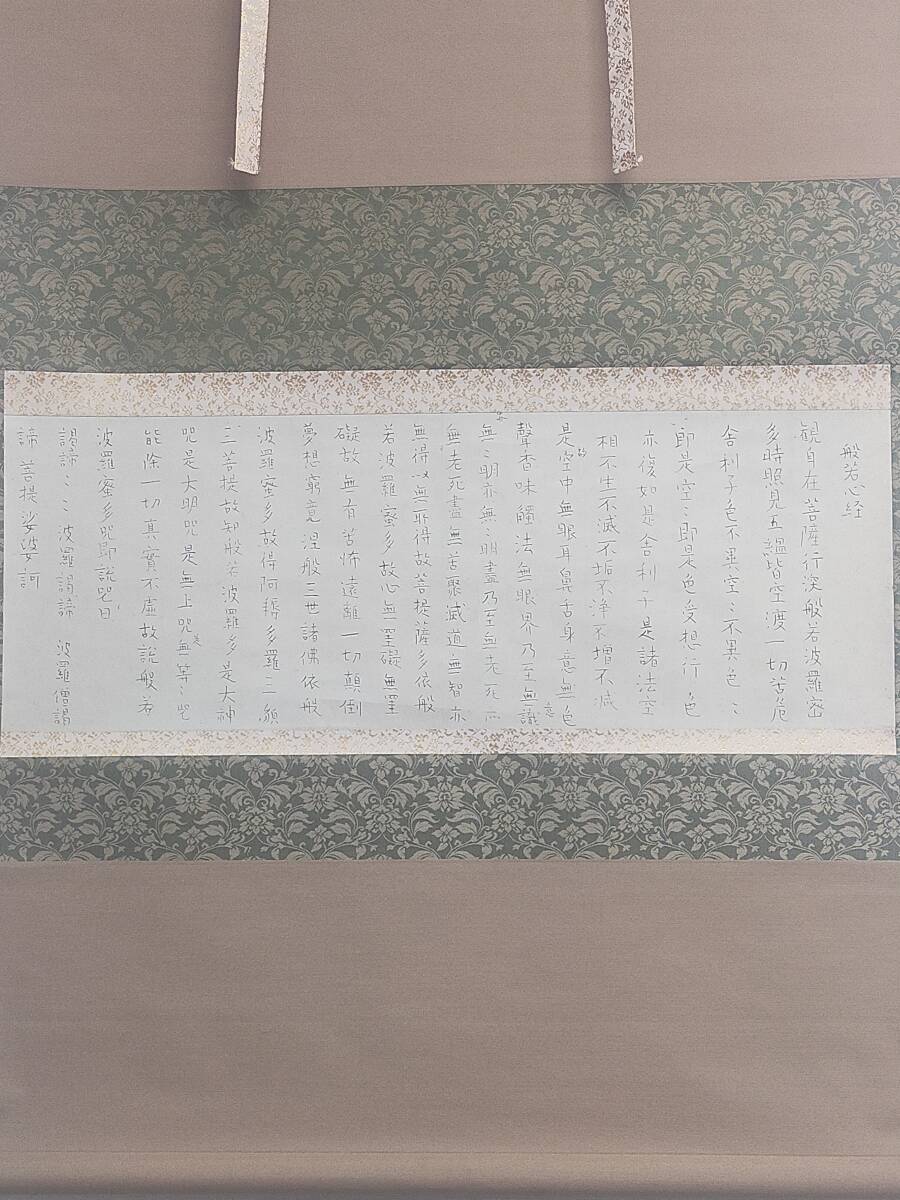 般若心経
観自在菩薩行深般若波羅密
多時照見五蘊皆空渡一切苦厄
舎利子色不異空〻不異色〻
即是空〻即是色受想行色
亦復如是舎利子是諸法空
相不生不滅不垢不浄不増不減
是故空中無眼耳鼻舌身意無色
聲香味觸法無眼界乃至無意識
無〻明亦無〻明盡乃至無老死
無老死盡無苦聚滅道無智亦
無得以無所得故菩提薩多依般
若波羅蜜多故心無罣礙無罣
礙故無有苦怖遠離一切顛倒
夢想窮竟涅般三世諸佛依般
波羅蜜多故得阿耨多羅三貌
三菩提故知般若波羅多是大神
咒是大明咒是無上咒是無等〻咒
能除一切真實不虚故説般若
波羅蜜多咒即説咒曰
謁諦〻〻波羅謁諦 波羅僧謁
諦 菩提娑婆訶